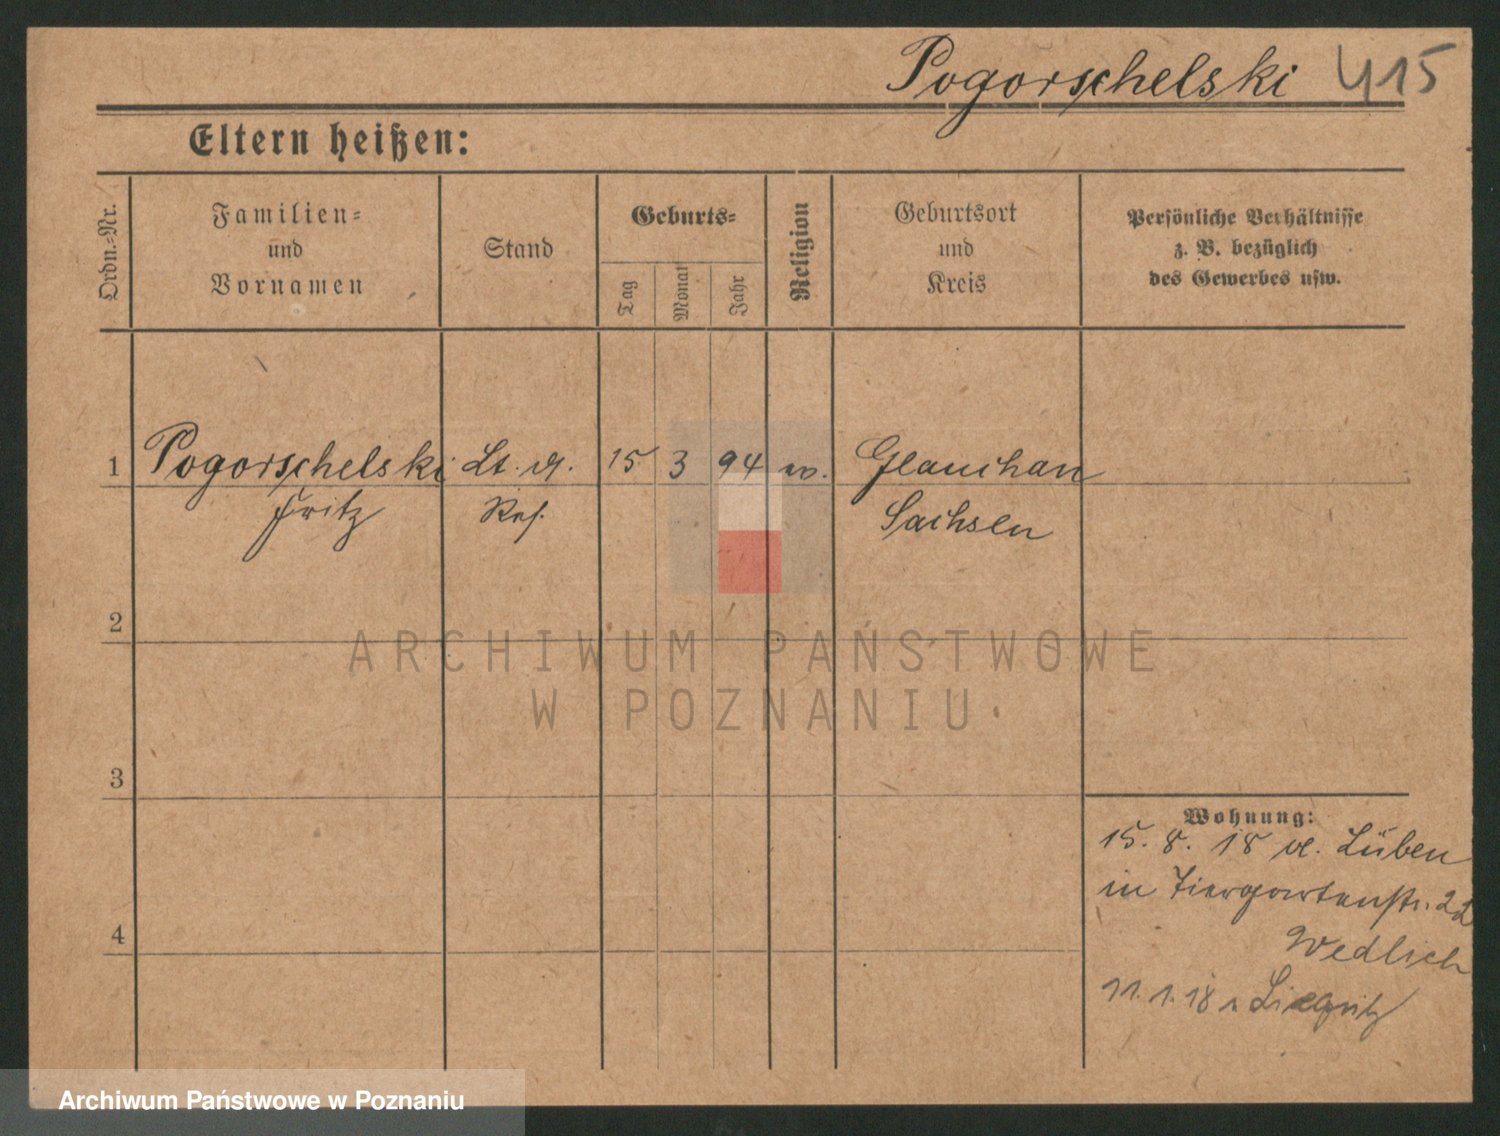 Pogorschelski 415
Eltern heißen:
Ordn.-Nr.
Familien-
und
Vornamen
Stand
Geburts-
Tag
Monat
Jahr
Religion
Geburtsort
und
Kreis
Persönliche Verhältnisse
z. B. bezüglich
des Gewerbes usw.
1 Pogorschelski Lt. d. 15 3 94 Glauchau
Fritz Res. Sachsen
2
ARCHIWUM PAŃSTWOWE
W POZNANIU
3
Wohnung:
15. 8. 18 v. Lüben
in Tiergartenstr. 22
Wedlich
4
11. 1. 18 n Liegnitz
Archiwum Państwowe w Poznaniu